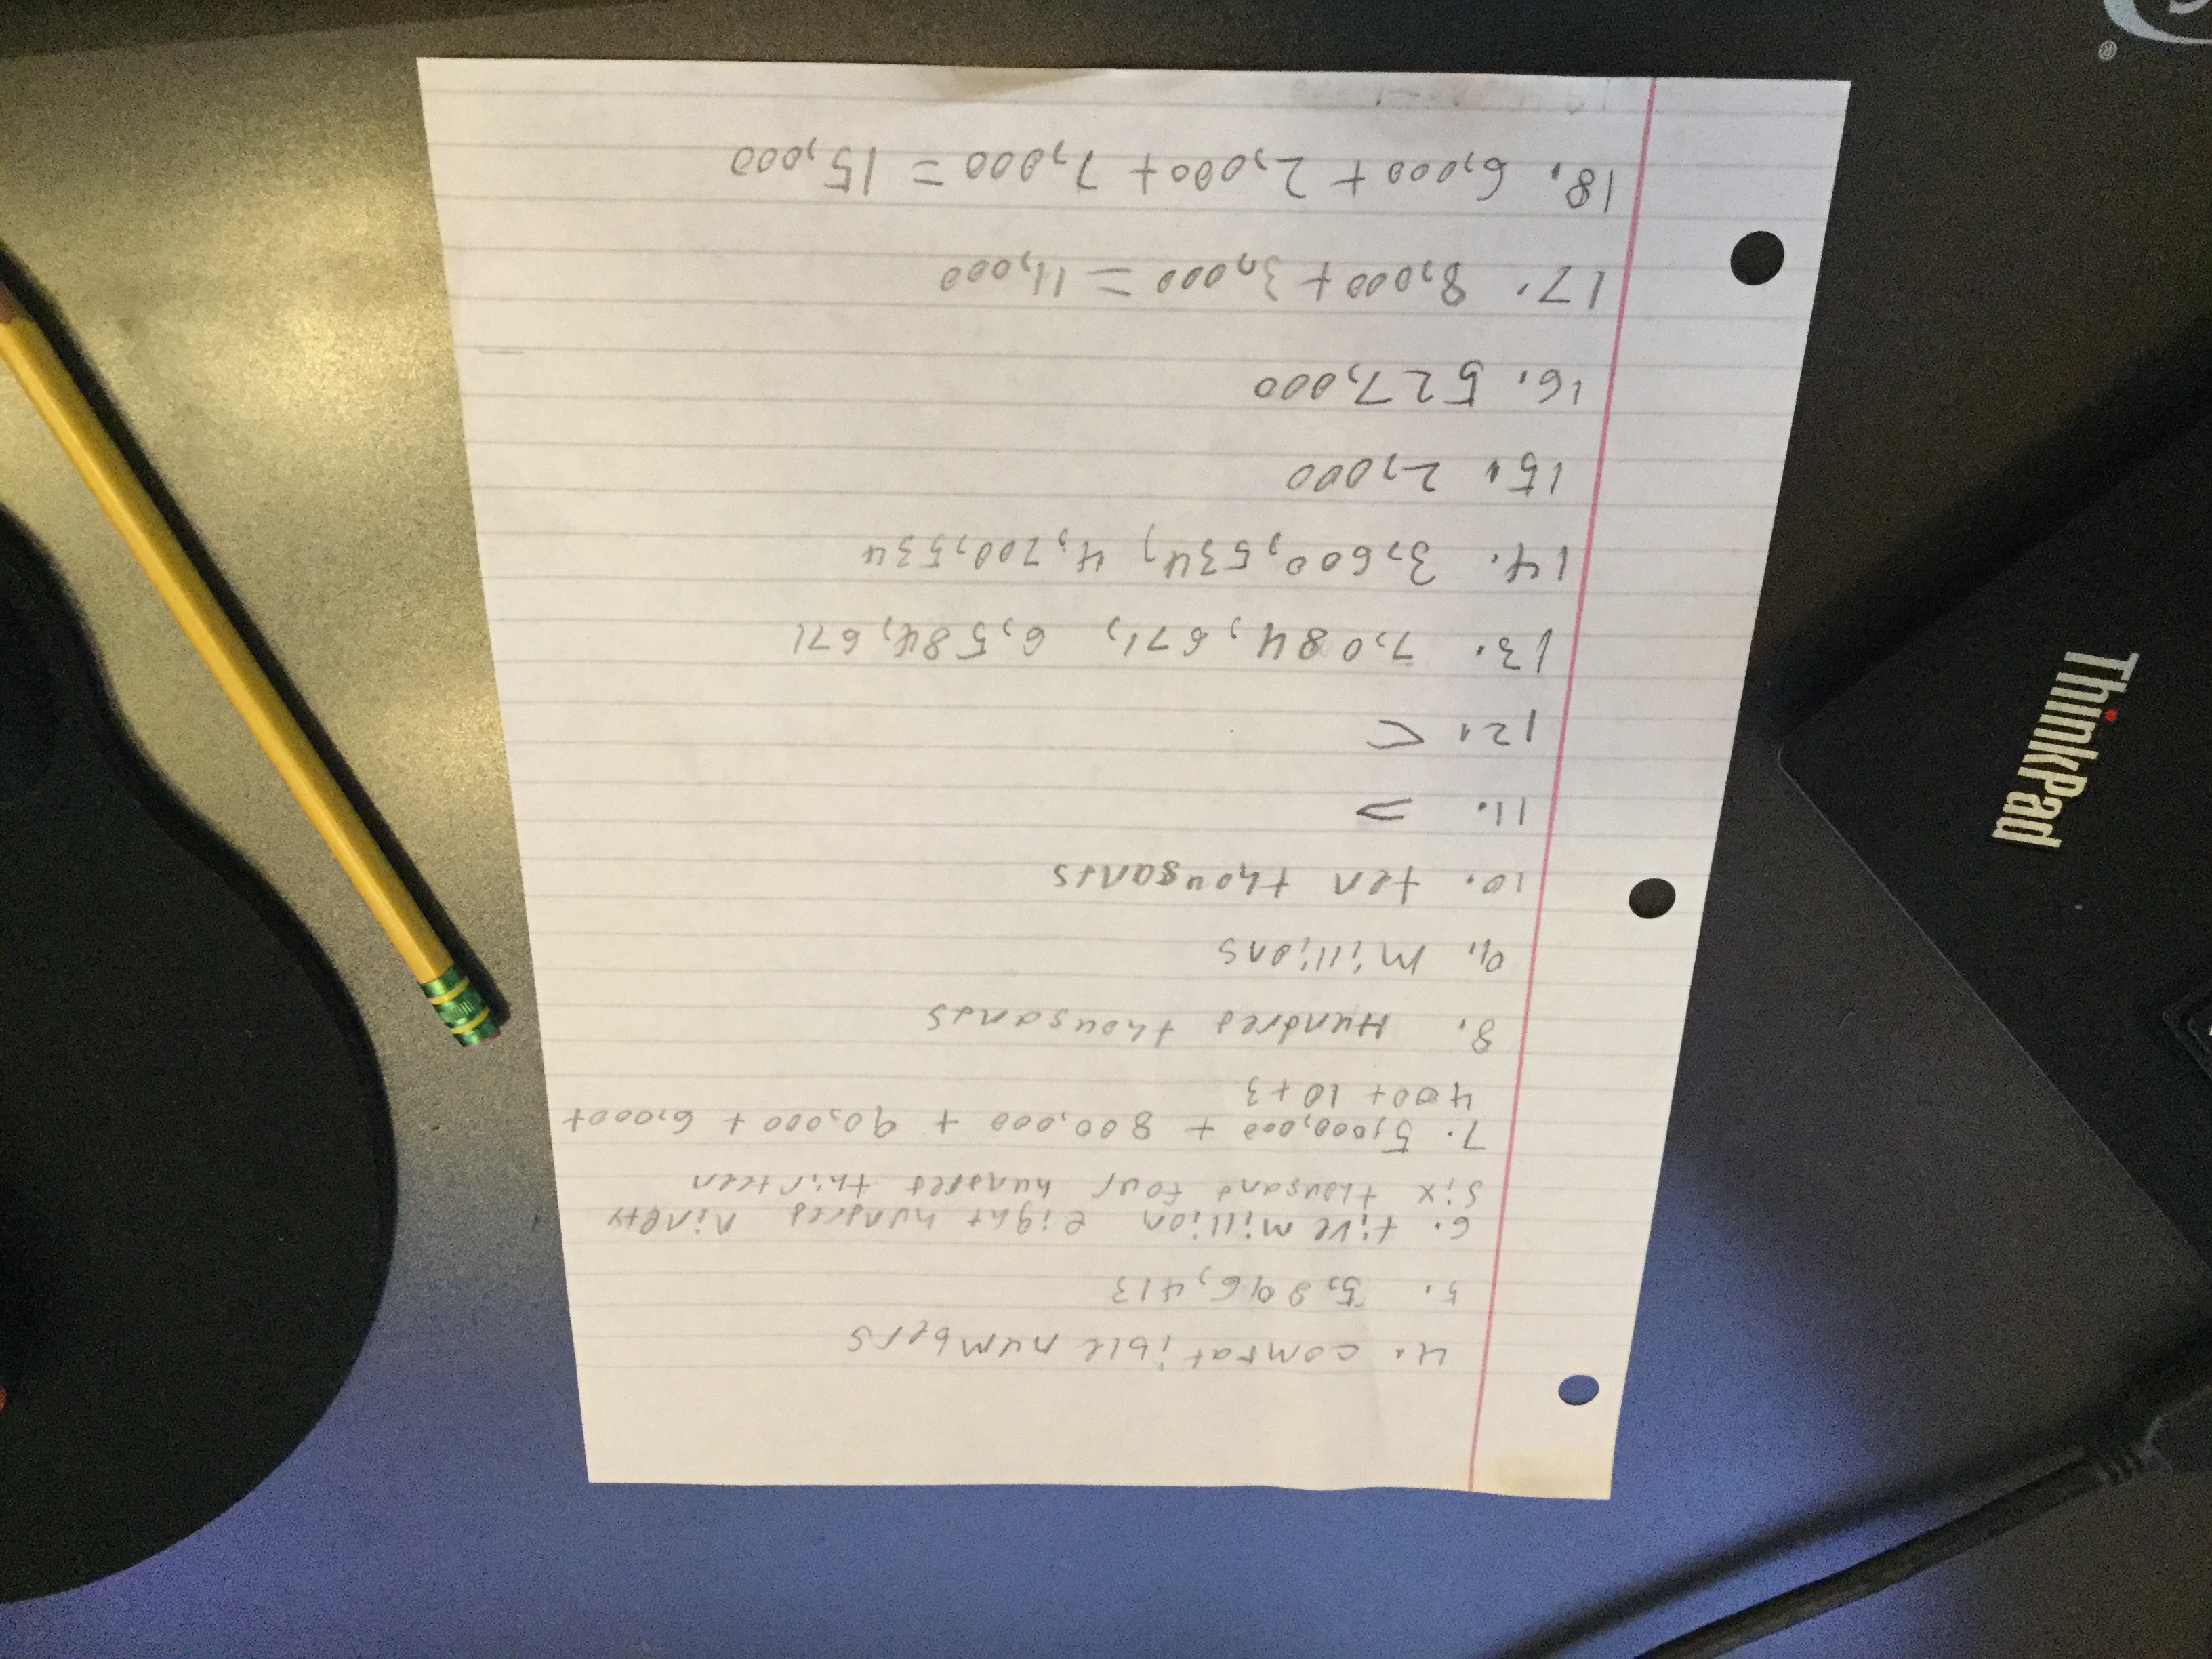 4. compatible numbers
5. 5,896,413
6. five million eight hundred ninety
six thousand four hundred thirteen
7. 5,000,000 + 800,000 + 90,000 + 6,000+
400+ 10+3
8. Hundred thousands
9. Millions
10. ten thousands
11. >
12. <
13. 7,084,671, 6,584,671
14. 3,600,534, 4,700,534
15. 2,000
16. 527,000
17. 8,000+3,000=11,000
18. 6,000+2,000+7,000=15,000
ThinkPad
®